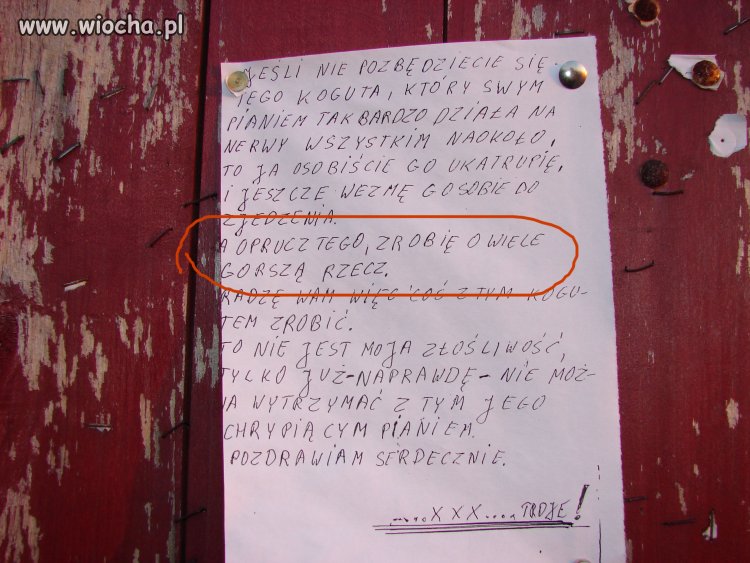 www.wiocha.pl
JEŚLI NIE POZBĘDZIECIE SIĘ
TEGO KOGUTA, KTÓRY SWYM
PIANIEM TAK BARDZO DZIAŁA NA
NERWY WSZYSTKIM NAOKOŁO,
TO JA OSOBIŚCIE GO UKATRUPIĘ,
I JESZCZE WEZMĘ GO SOBIE DO
ZJEDZENIA.
A OPRUCZ TEGO, ZROBIĘ O WIELE
GORSZĄ RZECZ.
RADZĘ WAM WIĘC COŚ Z TYM KOGU-
TEM ZROBIĆ.
TO NIE JEST MOJA ZŁOŚLIWOŚĆ,
TYLKO JUŻ-NAPRAWDĘ-NIE MOŻ-
NA WYTRZYMAĆ Z TYM JEGO
CHRYPIĄCYM PIANIEM.
POZDRAWIAM SERDECZNIE.
.....XXX....